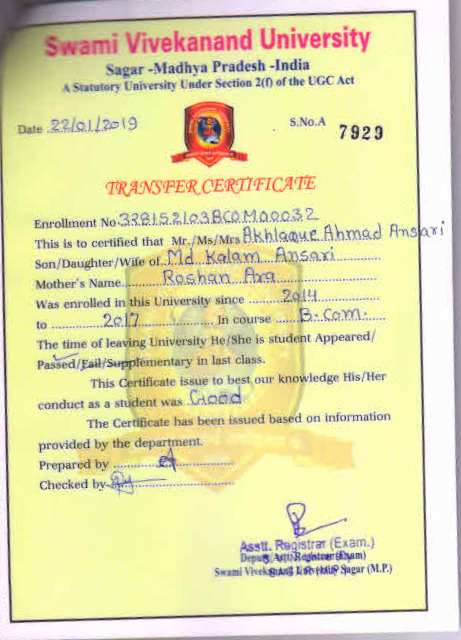 Swami Vivekanand University
Sagar -Madhya Pradesh -India
A Statutory University Under Section 2(f) of the UGC Act
Date 22/01/2019 S.No.A 7929
TRANSFER CERTIFICATE
Enrollment No.328152103BCOM00032
This is to certified that Mr./Ms/Mrs Akhlaque Ahmad Ansari
Son/Daughter/Wife of Md Kalam Ansari
Mother's Name Roshan Ara
Was enrolled in this University since 2014
to 2017 In course B.Com.
The time of leaving University He/She is student Appeared/
Passed/Fail/Supplementary in last class.
This Certificate issue to best our knowledge His/Her
conduct as a student was Good
The Certificate has been issued based on information
provided by the department.
Prepared by
Checked by
Asstt. Registrar (Exam.)
Deputy/Astt. Registrar (Exam)
Swami Vivekanand University Sagar (M.P.)